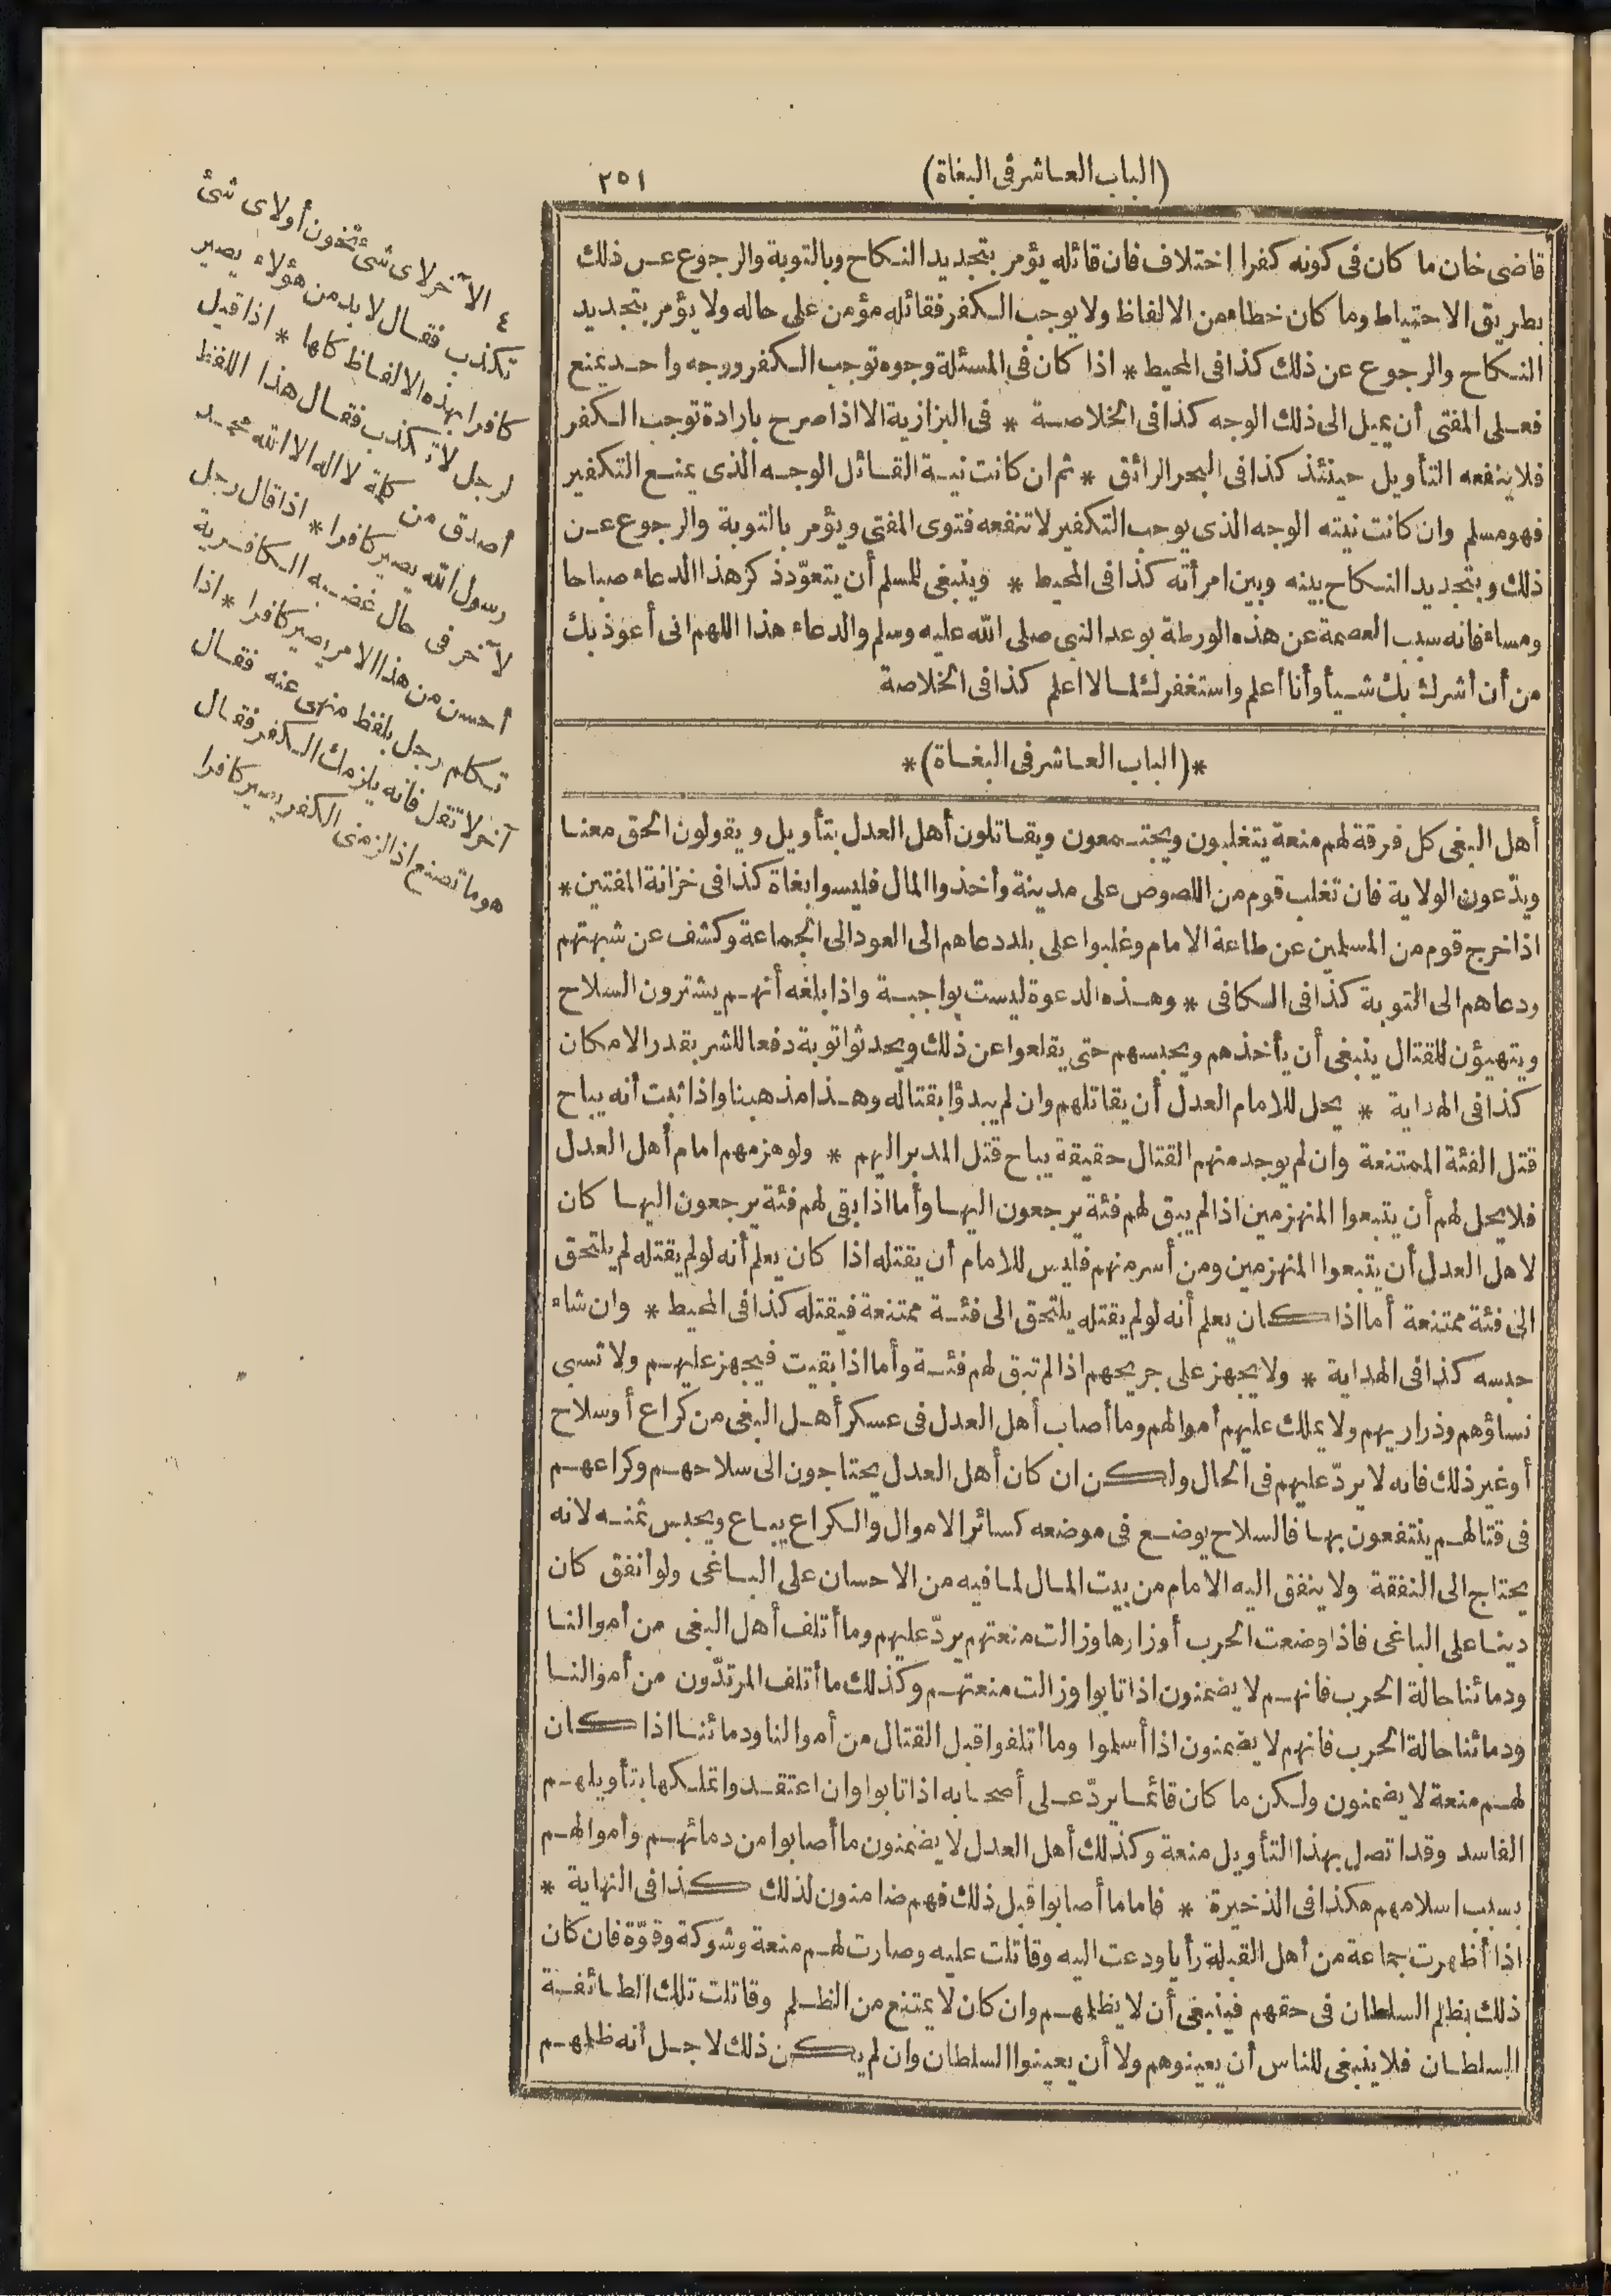 (الباب العاشر فى البغاة) ٢٥١
قاضى خان ما كان فى كونه كفرا اختلاف فان قائله يؤمر بتجديد النكاح وبالتوبة والرجوع عن ذلك
بطريق الاحتياط وما كان خطاء من الالفاظ ولا يوجب الكفر فقائله مؤمن على حاله ولا يؤمر بتجديد
النكاح والرجوع عن ذلك كذا فى المحيط * اذا كان فى المسئلة وجوه توجب الكفر ووجه واحد يمنع
فعلى المفتى أن يميل الى ذلك الوجه كذا فى الخلاصة * فى البزازية الا اذا صرح بارادة توجب الكفر
فلا ينفعه التأويل حينئذ كذا فى البحر الرائق * ثم ان كانت نية القائل الوجه الذى يمنع التكفير
فهو مسلم وان كانت نيته الوجه الذى يوجب التكفير لا تنفعه فتوى المفتى ويؤمر بالتوبة والرجوع عن
ذلك وبتجديد النكاح بينه وبين امرأته كذا فى المحيط * وينبغى للمسلم أن يتعوّذ ذكر هذا الدعاء صباحا
ومساء فانه سبب العصمة عن هذه الورطة بوعد النبى صلى الله عليه وسلم والدعاء هذا اللهم انى أعوذ بك
من أن أشرك بك شيأ وأنا أعلم واستغفرك لما لا اعلم كذا فى الخلاصة
*(الباب العاشر فى البغاة)*
أهل البغى كل فرقة لهم منعة يتغلبون ويجتمعون ويقاتلون أهل العدل بتأويل ويقولون الحق معنا
ويدّعون الولاية فان تغلب قوم من اللصوص على مدينة وأخذوا المال فليسوا بغاة كذا فى خزانة المفتين *
اذا خرج قوم من المسلمين عن طاعة الامام وغلبوا على بلد دعاهم الى العود الى الجماعة وكشف عن شبهتهم
ودعاهم الى التوبة كذا فى الكافى * وهذه الدعوة ليست بواجبة واذا بلغه أنهم يشترون السلاح
ويتهيؤن للقتال ينبغى أن يأخذهم ويحبسهم حتى يقلعوا عن ذلك ويحدثوا توبة دفعا للشر بقدر الامكان
كذا فى الهداية * يحل للامام العدل أن يقاتلهم وان لم يبدؤا بقتاله وهذا مذهبنا واذا ثبت أنه يباح
قتل الفئة الممتنعة وان لم يوجد منهم القتال حقيقة يباح قتل المدبر اليهم * ولو هزمهم امام أهل العدل
فلا يحل لهم أن يتبعوا المنهزمين اذا لم يبق لهم فئة يرجعون اليها وأما اذا بقى لهم فئة يرجعون اليها كان
لاهل العدل أن يتبعوا المنهزمين ومن أسر منهم فليس للامام أن يقتله اذا كان يعلم أنه لو لم يقتله لم يلتحق
الى فئة ممتنعة أما اذا كان يعلم أنه لو لم يقتله يلتحق الى فئة ممتنعة فيقتله كذا فى المحيط * وان شاء
حبسه كذا فى الهداية * ولا يجهز على جريحهم اذا لم تبق لهم فئة وأما اذا بقيت فيجهز عليهم ولا تسبى
نساؤهم وذراريهم ولا يملك عليهم أموالهم وما أصاب أهل العدل فى عسكر أهل البغى من كراع أو سلاح
أو غير ذلك فانه لا يردّ عليهم فى الحال ولكن ان كان أهل العدل يحتاجون الى سلاحهم وكراعهم
فى قتالهم ينتفعون بها فالسلاح يوضع فى موضعه كسائر الاموال والكراع يباع ويحبس ثمنه لانه
يحتاج الى النفقة ولا ينفق اليه الامام من بيت المال لما فيه من الاحسان على الباغى ولو أنفق كان
دينا على الباغى فاذا وضعت الحرب أوزارها وزالت منعتهم يردّ عليهم وما أتلف أهل البغى من أموالنا
ودمائنا حالة الحرب فانهم لا يضمنون اذا تابوا وزالت منعتهم وكذلك ما أتلف المرتدّون من أموالنا
ودمائنا حالة الحرب فانهم لا يضمنون اذا أسلموا وما أتلفوا قبل القتال من أموالنا ودمائنا اذا كان
لهم منعة لا يضمنون ولكن ما كان قائما يردّ على أصحابه اذا تابوا وان اعتقدوا تملكها بتأويلهم
الفاسد وقد اتصل بهذا التأويل منعة وكذلك أهل العدل لا يضمنون ما أصابوا من دمائهم وأموالهم
بسبب اسلامهم هكذا فى الذخيرة * فاما ما أصابوا قبل ذلك فهم ضامنون لذلك كذا فى النهاية *
اذا أظهرت جماعة من أهل القبلة رأيا ودعت اليه وقاتلت عليه وصارت لهم منعة وشوكة وقوّة فان كان
ذلك بظلم السلطان فى حقهم فينبغى أن لا يظلمهم وان كان لا يمتنع من الظلم وقاتلت تلك الطائفة
السلطان فلا ينبغى للناس أن يعينوهم ولا أن يعينوا السلطان وان لم يكن ذلك لاجل أنه ظلمهم
٤ الآخر لاى شئ تخون أو لاى شئ
تكذب فقال لا بد من هؤلاء يصير
كافرا بهذه الالفاظ كلها * اذا قيل
لرجل لا تكذب فقال هذا اللفظ
أصدق من كلمة لا اله الا الله محمد
رسول الله يصير كافرا * اذا قال رجل
لآخر فى حال غضبه الكافرية
أحسن من هذا الامر يصير كافرا * اذا
تكلم رجل بلفظ منهى عنه فقال
آخر لا تقل فانه يلزمك الكفر فقال
هو ما تصنع اذا لزمنى الكفر يصير كافرا